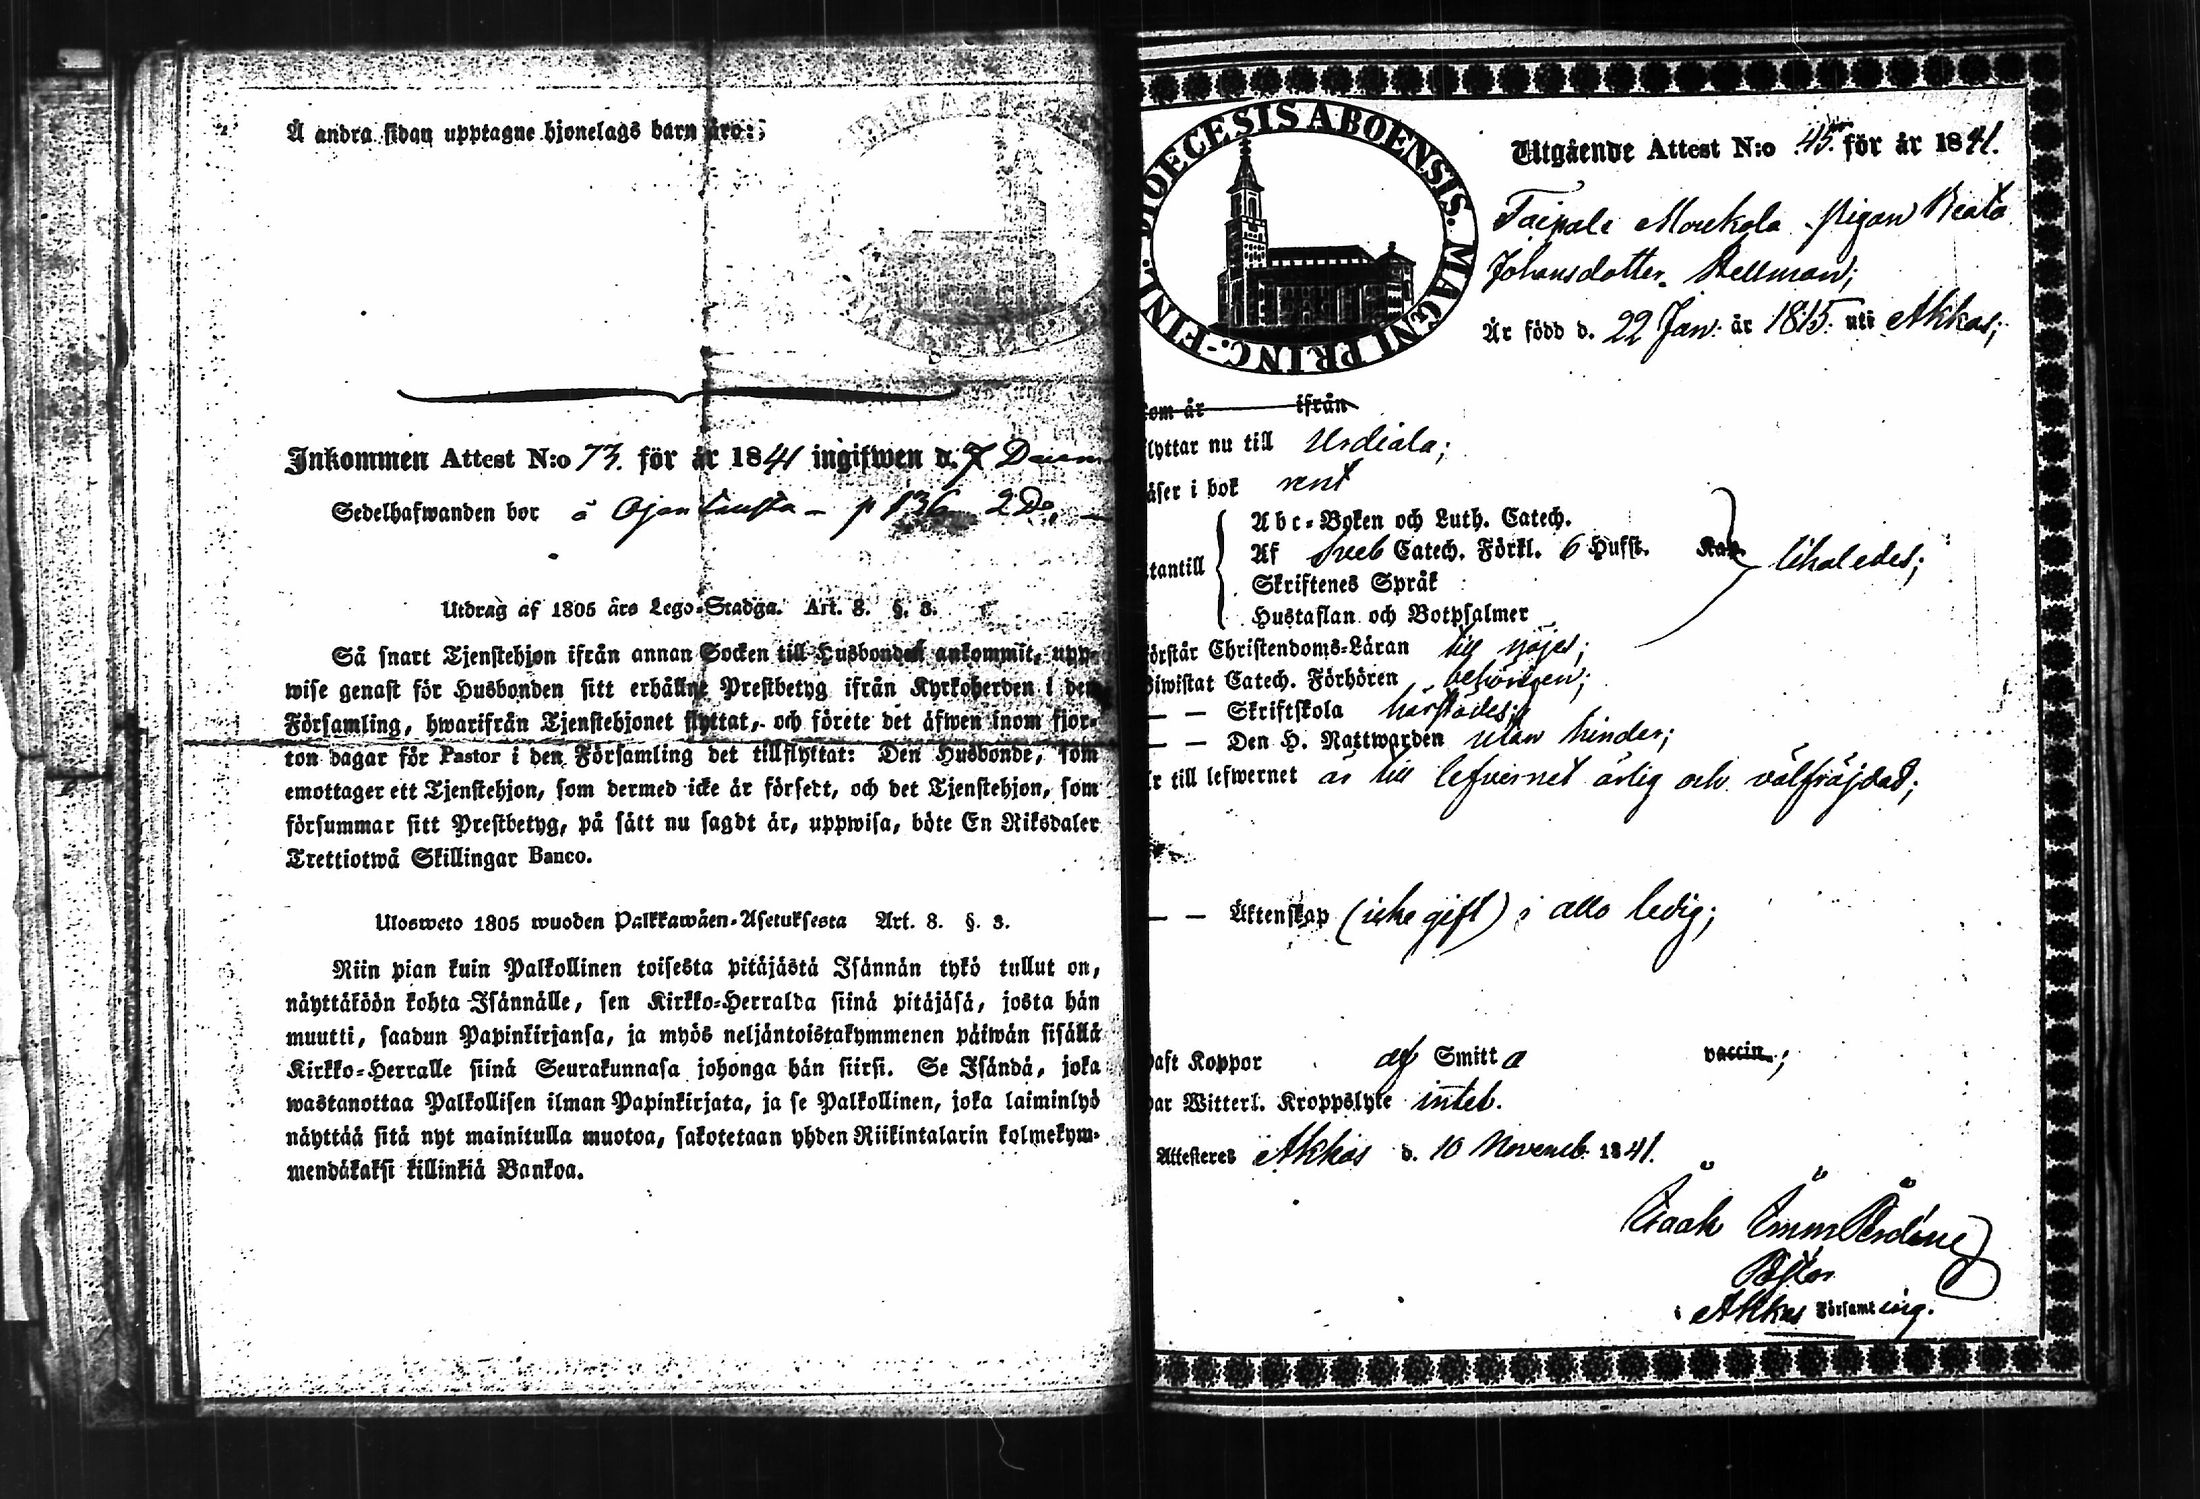 Å andra sidan upptagne hjonelags barn äro:
Inkommen Attest N:o 73. för år 1841 ingifwen d. 7
Sedelhafwanden bor å p 136
Utdrag af 1805 års Lego-Stadga. Art. 8. §. 3.
Så snart Tjenstehjon ifrån annan Socken till Husbonden ankommit, upp-
wise genast för Husbonden sitt erhållne Prestbetyg ifrån Kyrkoherden i den
Församling, hwarifrån Tjenstehjonet flyttat, och förete det äfwen inom fjor-
ton dagar för Pastor i den Församling det tillflyttat: Den Husbonde, som
emottager ett Tjenstehjon, som dermed icke är försedt, och det Tjenstehjon, som
försummar sitt Prestbetyg, på sätt nu sagdt är, uppwisa, böte En Riksdaler
Trettiotwå Skillingar Banco.
Ulosweto 1805 wuoden Palkkawäen-Asetuksesta Art. 8. §. 3.
Niin pian kuin Palkollinen toisesta pitäjästä Isännän tykö tullut on,
näyttäköön kohta Isännälle, sen Kirkko-Herralda siinä pitäjäsä, josta hän
muutti, saadun Papinkirjansa, ja myös neljäntoistakymmenen päiwän sisällä
Kirkko-Herralle siinä Seurakunnasa johonga hän siirsi. Se Isändä, joka
wastanottaa Palkollisen ilman Papinkirjata, ja se Palkollinen, joka laiminlyö
näyttää sitä nyt mainitulla muotoa, sakotetaan yhden Riikintalarin kolmekym-
mendäkaksi killinkiä Bankoa.
DIOECESIS ABOENSIS. MAGNI PRINC. FINL.
Utgående Attest N:o 45. för år 1841.
Taipale Moukola Pigan Beata
Johansdotter Hellman;
Är född d. 22 Jan: år 1815. uti Akkas;
som är ifrån
flyttar nu till Urdiala;
läser i bok rent
utantill
Abc-Boken och Luth. Catech.
Af Sveb Catech. Förkl. 6 Hufst. Kap.
Skriftenes Språk
Hustaflan och Botpsalmer
likaledes;
förstår Christendoms-Läran till nöjes;
biwistat Catech. Förhören behörigen;
— — Skriftskola härstädes;
— — Den H. Nattwarden utan hinder;
är till lefwernet är till lefvernet ärlig och välfräjdad;
— — Äktenskap (icke gift) i allo ledig;
haft Koppor af Smitta vaccin.;
har Witterl. Kroppslyte intet.
Attesteres Akkas d. 10 Novemb. 1841.
Isaak Emm
Pastor
i Akkas Församling.